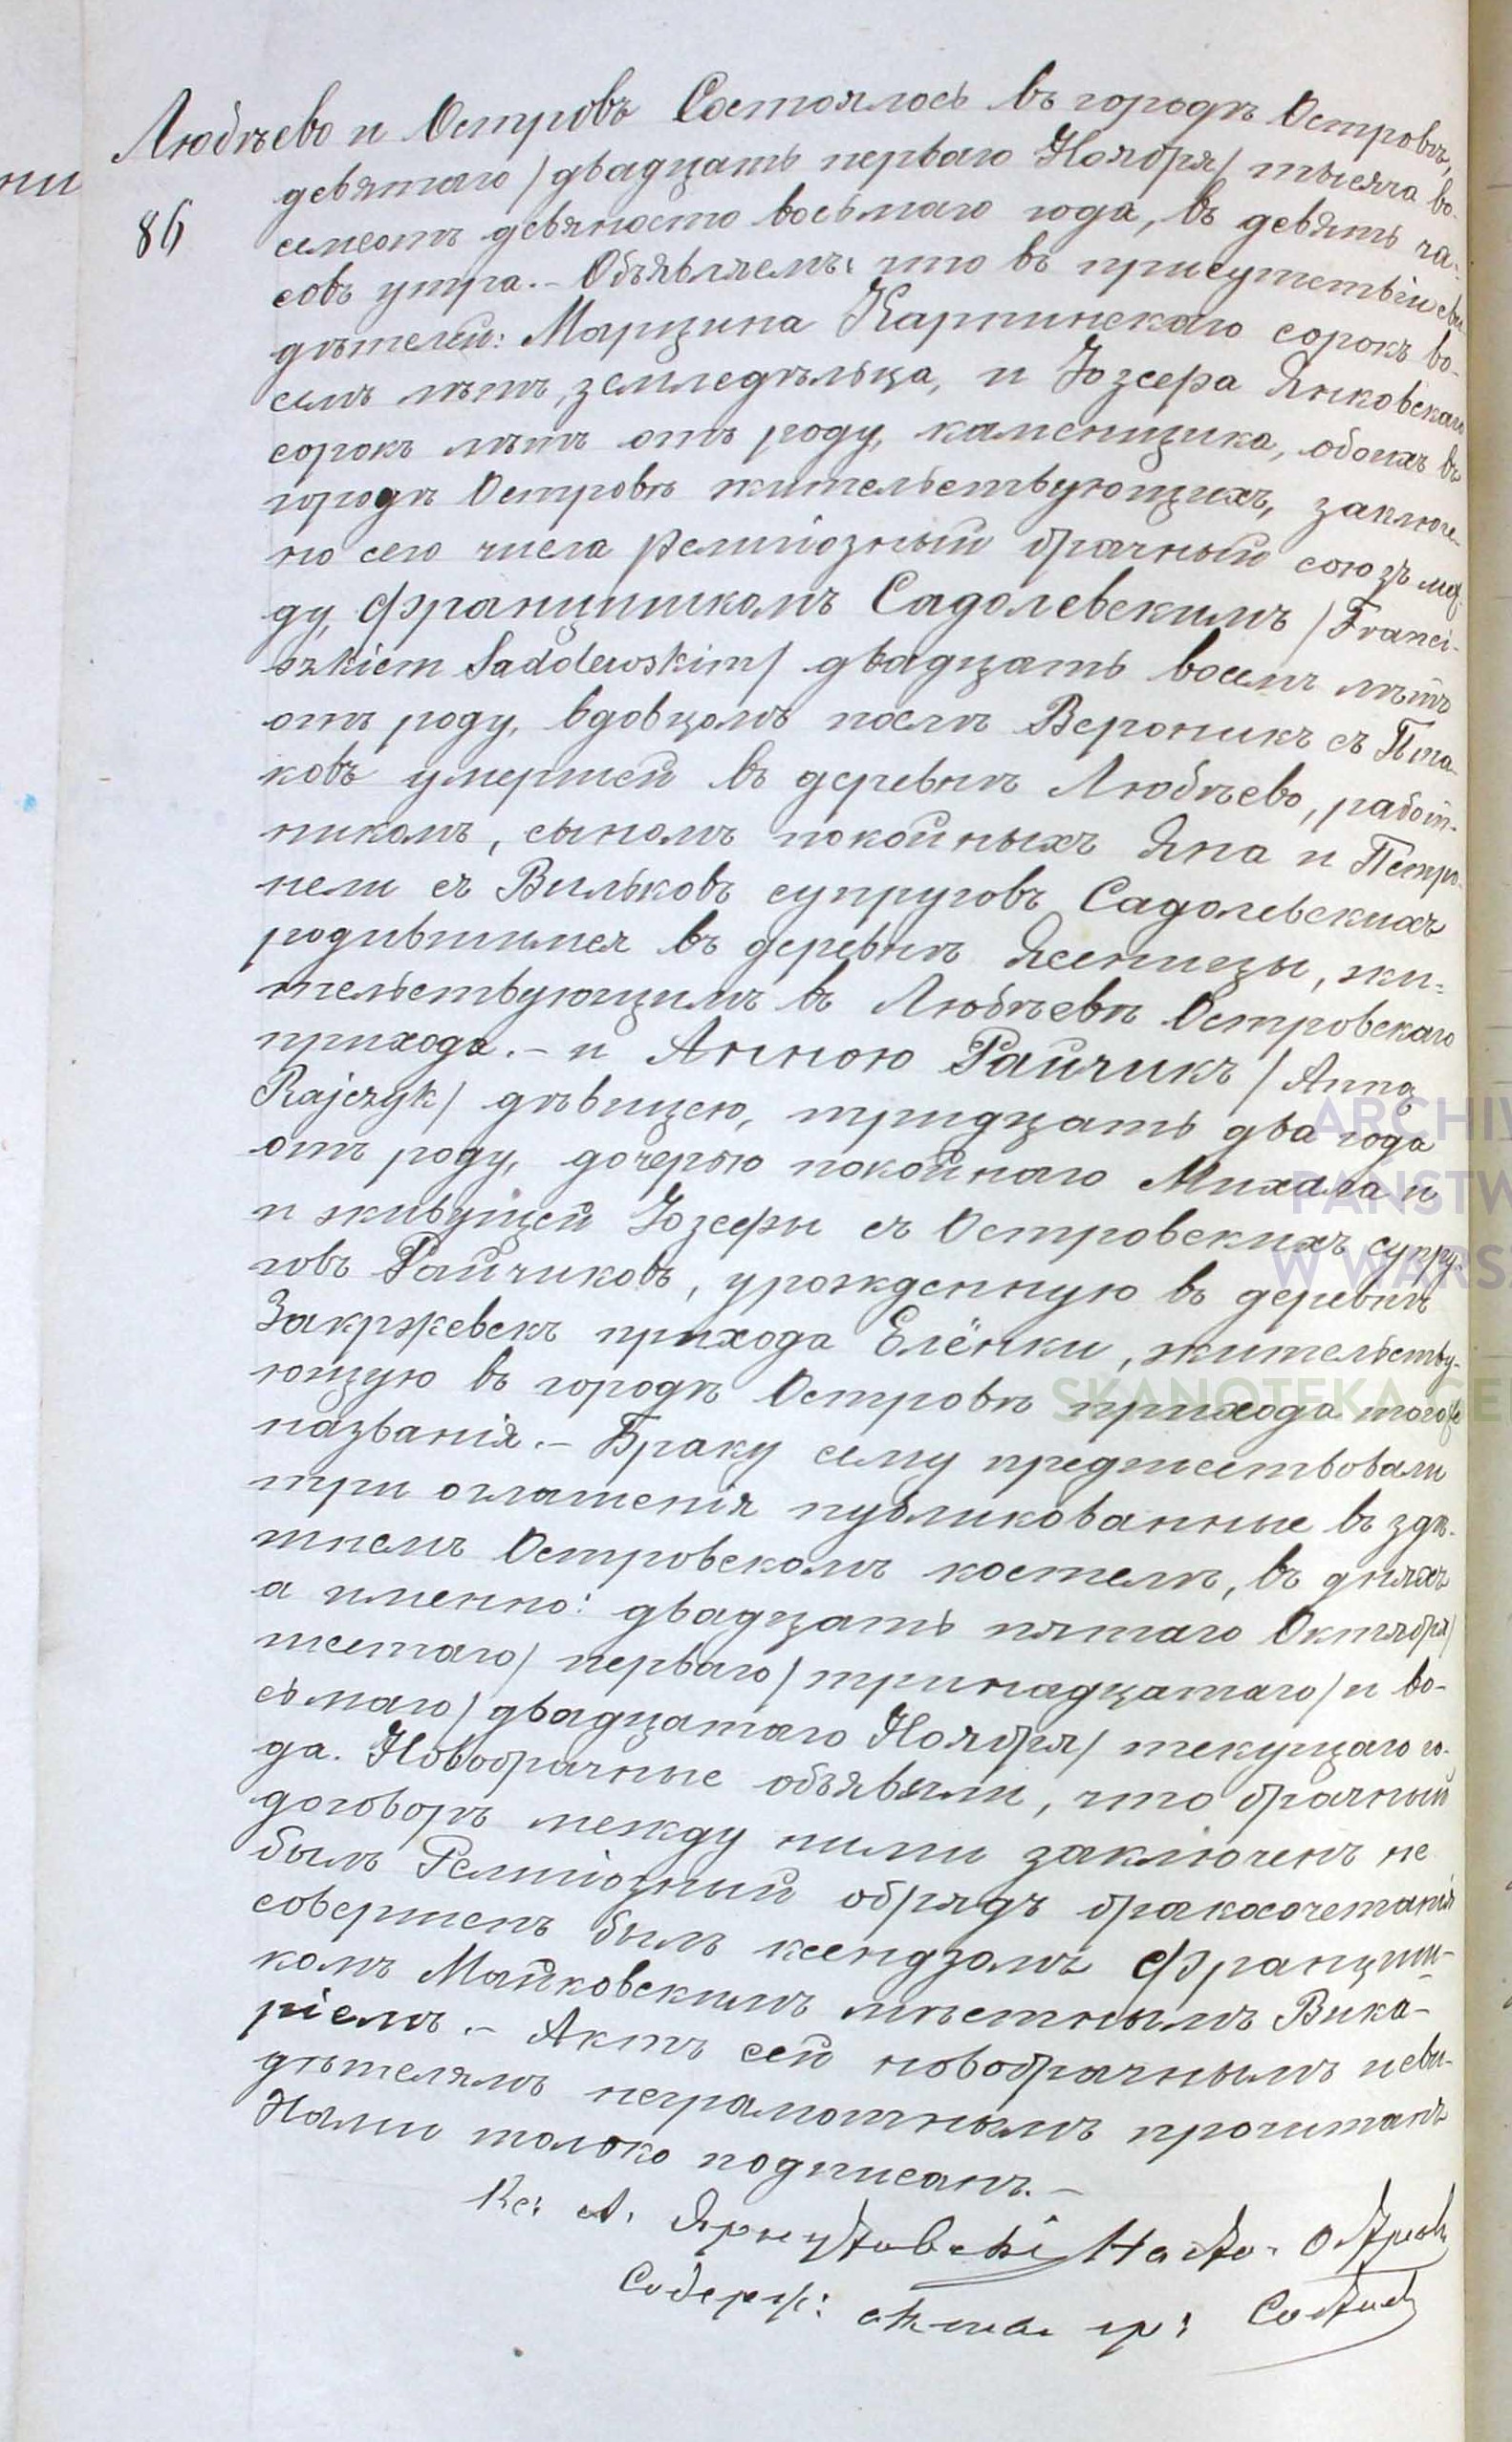 Любѣево и Островъ Состоялось въ городѣ Островѣ,
86
девятаго /двадцать перваго Ноября/ тысяча во-
семсотъ девяносто восьмаго года, въ девять ча-
совъ утра.- Объявляемъ: что въ присутствіи сви
дѣтелей: Марцина Карпинскаго сорокъ во-
семъ лѣтъ, земледѣльца, и Юзефа Янковскаго
сорокъ лѣтъ отъ роду, каменщика, обоихъ въ
городѣ Островѣ жительствующихъ, заключе-
но сего числа религіозный брачный союзъ меж
ду, Францишкомъ Садолевскимъ /Franci-
szkiem Sadolewskim/ двадцать восемъ лѣтъ
отъ роду, вдовцомъ послѣ Вероникѣ съ Пта-
ковъ умершей въ деревнѣ Любѣево, работ-
никомъ, сыномъ покойныхъ Яна и Петро-
нели съ Вильковъ супруговъ Садолевскихъ
родившимся въ деревнѣ Ясеницы, жи-
тельствующимъ въ Любѣевѣ Островскаго
прихода.- и Анною Райчикъ /Anną
Rajczyk/ дѣвицею, тридцать два года
отъ роду, дочерью покойнаго Михала и
и живущей Юзефы съ Островскихъ супру-
говъ Райчиковъ, урожденную въ деревнѣ
Закржевекъ прихода Елёнки, жительству-
ющую въ городѣ Островѣ прихода тогоже
названія.- Браку сему предшествовали
три оглашенія публикованные въ здѣ-
шнемъ Островскомъ костелѣ, въ дняхъ
а именно: двадцать пятаго Октября/
шестаго/ перваго /тринадцатаго/ и во-
сьмаго /двадцатаго Ноября/ текущаго го-
да. Новобрачные объявили, что брачный
договоръ между ними заключенъ не
былъ Религіозный обрядъ бракосочетанія
совершенъ былъ ксендзомъ Францишк-
комъ Майковскимъ мѣстнымъ Вика-
ріемъ.- Актъ сей новобрачнымъ и сви-
дѣтелямъ неграмотнымъ прочитанъ
Нами только подписанъ.-
Кс: А.
Содерж: акта гр: Состоя
ARCHIW
PAŃSTW
W WARS
SKANOTEKA.GE